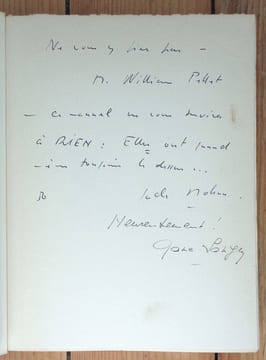 Ne vous y fiez pas —
M. William
— ce manuel ne vous servira
à RIEN : Elles ont quand
même toujours le dessus...
Heureusement !